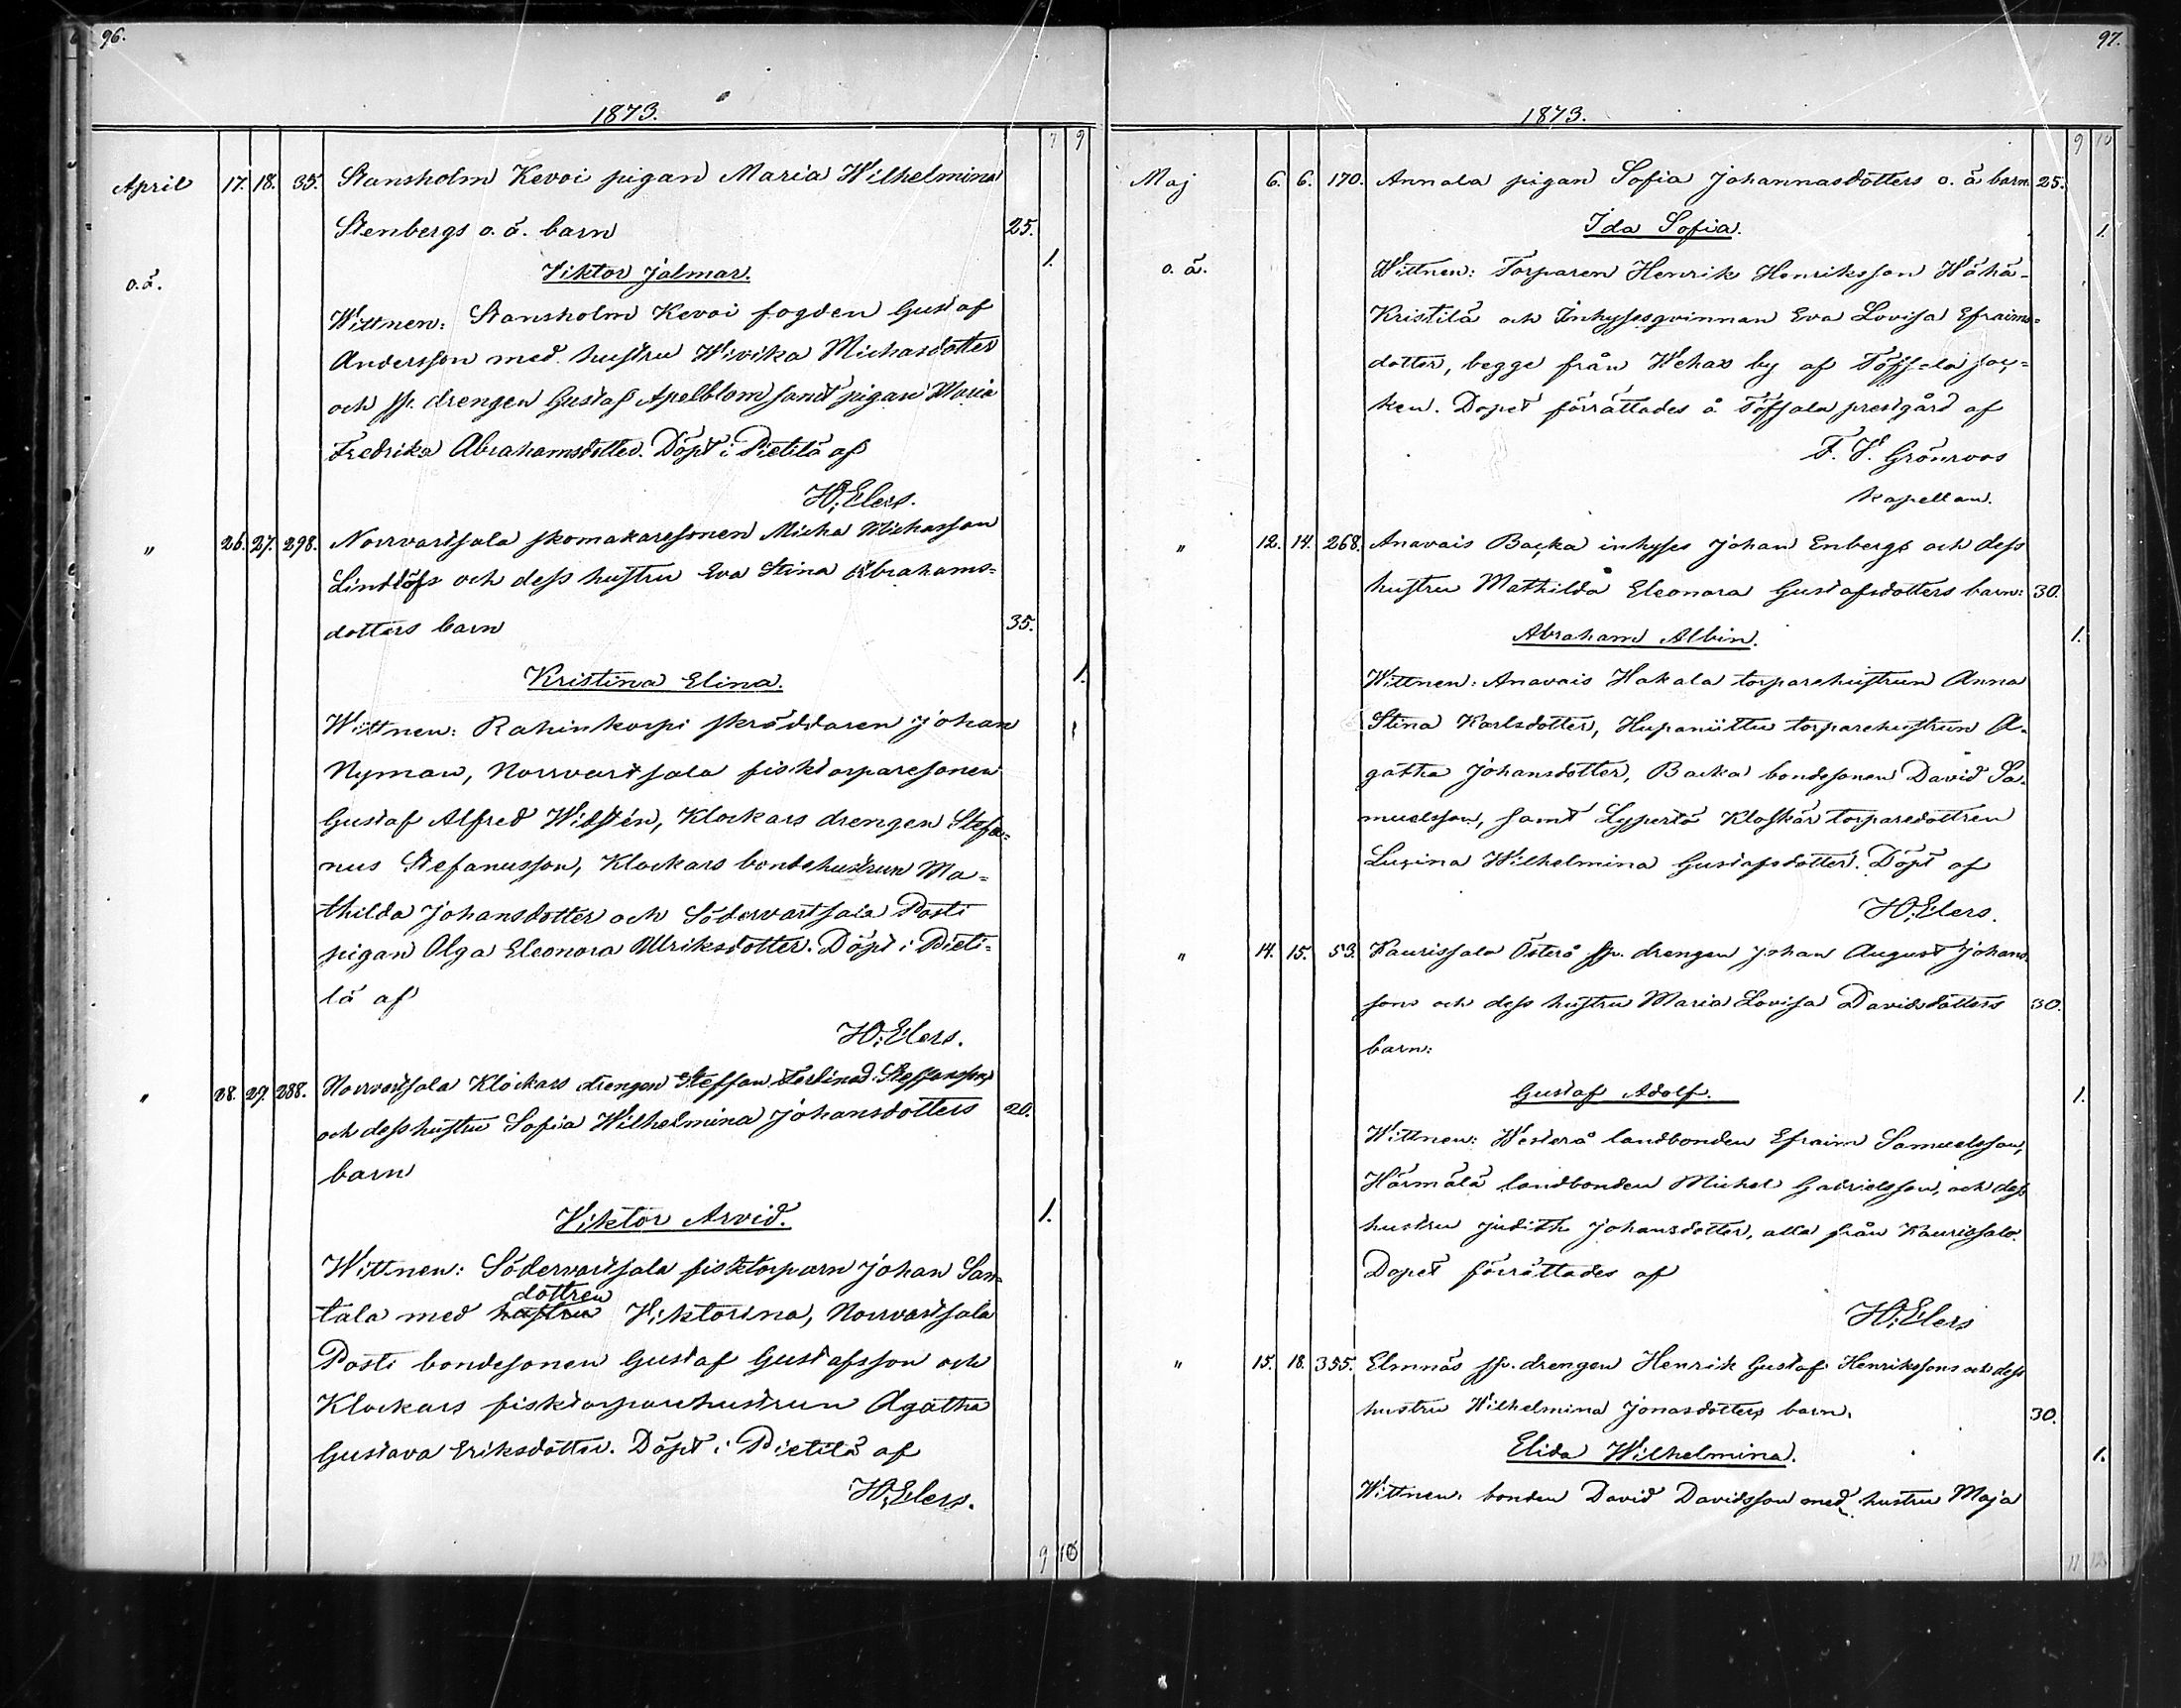 96.
1873.
7 9
April 17. 18. 35. Stansholm Kevoi pigan Maria Wilhelmina
Stenbergs o. ä. barn 25.
Viktor Jalmar. 1.
o. ä.
Wittnen: Stansholm Kevoi fogden Gustaf
Andersson med hustru Wivika Michasdotter
och sp. drengen Gustaf Apelblom samt pigan Maria
Fredrika Abrahamsdotter. Döpt i Pietilä af
H. Elers.
" 26. 27. 298. Norrvartsala skomakaresonen Micha Michasson
Lindlöfs och dess hustru Eva Stina Abrahams=
dotters barn 35.
Kristina Elina. 1.
Wittnen: Rahinkorpi skräddaren Johan
Nyman, Norrvartsala fisktorparesonen
Gustaf Alfred Widstén, Klockars drengen Stefa=
nus Stefanusson, Klockars bondehustrun Ma=
thilda Johansdotter och Södervartsala Posti
pigan Olga Eleonora Ulriksdotter. Döpt i Pieti=
lä af
H. Elers.
" 28. 29. 288. Norrvartsala Klockars drengen Steffan Ferdinad Steffanssons
och dess hustru Sofia Wilhelmina Johansdotters 20.
barn
Viktor Arvid. 1.
Wittnen: Södervartsala fisktorparn Johan San=
dottren
tala med hustru Viktorina, Norrvartsala
Posti bondesonen Gustaf Gustafsson och
Klockars fisktorparehustrun Agatha
Gustava Eriksdotter. Döpt i Pietilä af
H. Elers.
9 10
97.
1873.
9 10
Maj 6. 6. 170. Annala pigan Sofia Johannasdotters o. ä. barn 25.
Ida Sofia. 1.
o. ä. Wittnen: Torparen Henrik Henriksson Wähä-
Kristilä och Inhysesqvinnan Eva Lovisa Efraims=
dotter, begge från Wehax by af Töfsala soc=
ken. Dopet förrättades å Töfsala prestgård af
F. W. Grönroos
Kapellan.
" 12. 14. 268. Anavais Backa inhyses Johan Enbergs och dess
hustru Mathilda Eleonora Gustafsdotters barn: 30.
Abraham Albin. 1.
Wittnen: Anavais Hakala torparehustrun Anna
Stina Karlsdotter, Hupaniittu torparehustrun A-
gatha Johansdotter, Backa bondesonen David Sa-
muelsson, samt Lypertö Kloskär torparedottren
Lusina Wilhelmina Gustafsdotter. Döpt af
H. Elers.
" 14. 15. 53. Kaurissala Österå sp. drengen Johan August Johans-
sons och dess hustru Maria Lovisa Davidsdotters 30.
barn:
Gustaf Adolf. 1.
Wittnen: Westerå landbonden Efraim Samuelsson,
Härmälä landbonden Michel Gabrielsson, och dess
hustru Judith Johansdotter, alla från Kaurissalo.
Dopet förrättades af
H. Elers
" 15. 18. 355. Elmnäs sp. drengen Henrik Gustaf Henrikssons och dess
hustru Wilhelmina Jonasdotters barn. 30.
Elida Wilhelmina. 1.
Wittnen: bonden David Davidsson med hustru Maja
11 12